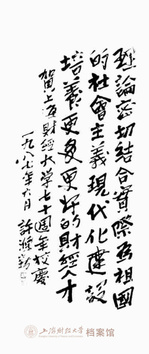 理論密切结合實際為祖國
的社會主義現代化建設
培養更多更好的財經人才
賀上海財經大学七十週年校慶
一九八七年六月 許滌新
上海财经大学 档案馆